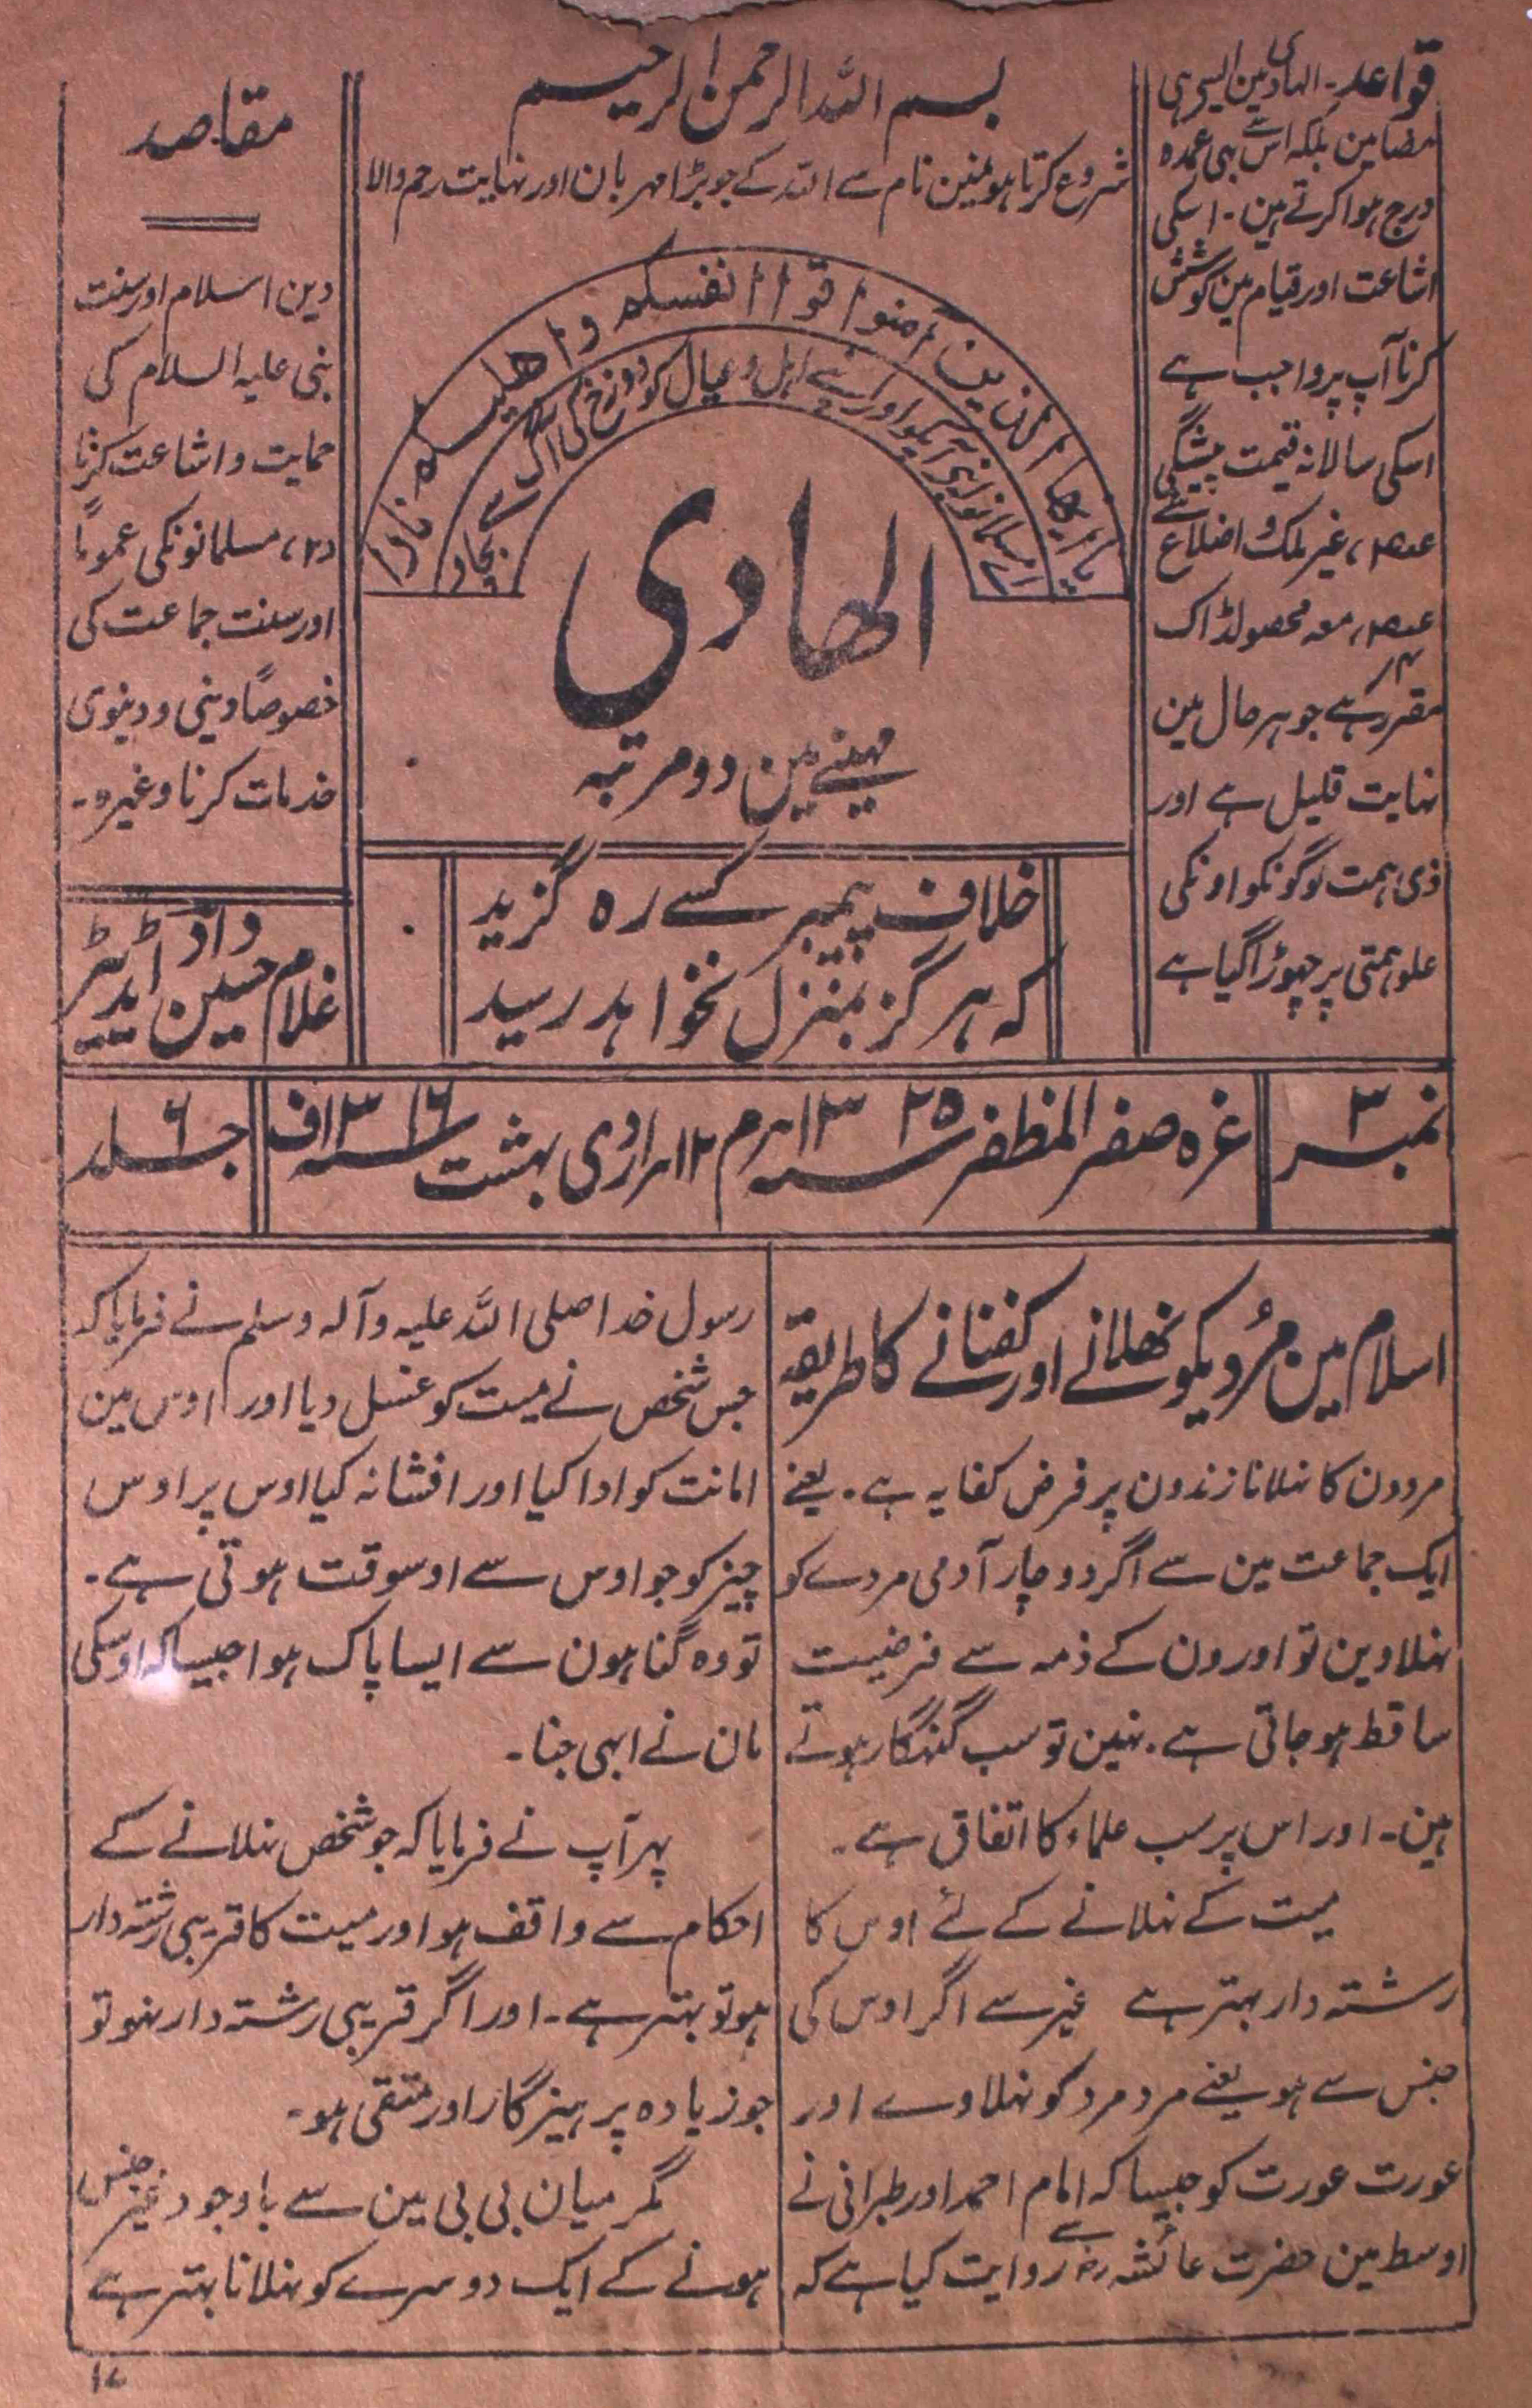 قواعد۔ الہادی مین ایسی ہی
مضامین بلکہ اس سے بہی عمدہ
درج ہوا کرتے ہین۔ اسکی
اشاعت اور قیام مین کوشش
کرنا آپ پر واجب ہے
اسکی سالانہ قیمت پیشگی
غیر ملک و اضلاع سے
معہ محصولڈاک
مقرر ہے جو ہر حال مین
نہایت قلیل ہے اور
ذی ہمت لوگونکو اونکی
علو ہمتی پر چہوڑا گیا ہے
بسم اللہ الرحمن الرحیم
شروع کرتا ہو نمین نام سے اللہ کے جو بڑا مہربان اور نہایت رحم والا
یا ایھا الذین امنوا قوا انفسکم و اھلیکم نارا
اے مسلمانو اپنی آپکو اور اپنے اہل و عیال کو دوزخ کی آگ سے بچاو
الھادی
مہینے مین دو مرتبہ
خلاف پیمبر کسے رہ گزید
کہ ہرگز بمنزل نخواہد رسید
مقاصد
دین اسلام اور سنت
نبی علیہ السلام کی
حمایت و اشاعت کرنا
(۲) مسلمانونکی عموماً
اور سنت جماعت کی
خصوصاً دینی و دینوی
خدمات کرنا وغیرہ۔
غلام حسین داؤد اڈیٹر
نمبر ۳
غرہ صفر المظفر سنہ ۱۳۲۵ ہرم ۱۲ ہر اردی بہشت سنہ ۱۳۱۶ ف
جلد ۶
اسلام مین مُردیکو نھلانے اور کفنانے کا طریقہ
مردون کا نہلانا زندون پر فرض کفایہ ہے۔ یعنے
ایک جماعت مین سے اگر دو چار آدمی مردے کو
نہلاوین تو اورون کے ذمہ سے فرضیت
ساقط ہو جاتی ہے۔ نہین تو سب گنہگار ہوتے
ہین۔ اور اس پر سب علماء کا اتفاق ہے۔
میت کے نہلانے کے لئے اوس کا
رشتہ دار بہتر ہے غیر سے اگر اوس کی
جنس سے ہو یعنے مرد مرد کو نہلاوے اور
عورت عورت کو جیسا کہ امام احمد اور طبرانی نے
اوسط مین حضرت عائشہ رض سے روایت کیا ہے کہ
رسول خدا صلی اللہ علیہ وآلہ وسلم نے فرمایا کہ
جس شخص نے میت کو غسل دیا اور اوس مین
امانت کو ادا کیا اور افشا نہ کیا اوس پر اوس
چیز کو جو اوس سے اوسوقت ہوتی ہے۔
تو وہ گناہون سے ایسا پاک ہوا جیسا کہ اوسکی
مان نے ابہی جنا۔
پہر آپ نے فرمایا کہ جو شخص نہلانے کے
احکام سے واقف ہو اور میت کا قریبی رشتہ دار
ہو تو بہتر ہے۔ اور اگر قریبی رشتہ دار نہو تو
جو زیادہ پرہیزگار اور متقی ہو۔
مگر میان بی بی مین سے باوجود غیر جنس
ہونے کے ایک دوسرے کو نہلانا بہتر ہے
۱۷